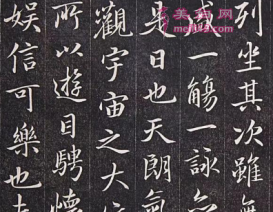 列坐其次雖無
一觴一詠亦
是日也天朗氣
觀宇宙之大俯
所以遊目騁懷
娛信可樂也夫